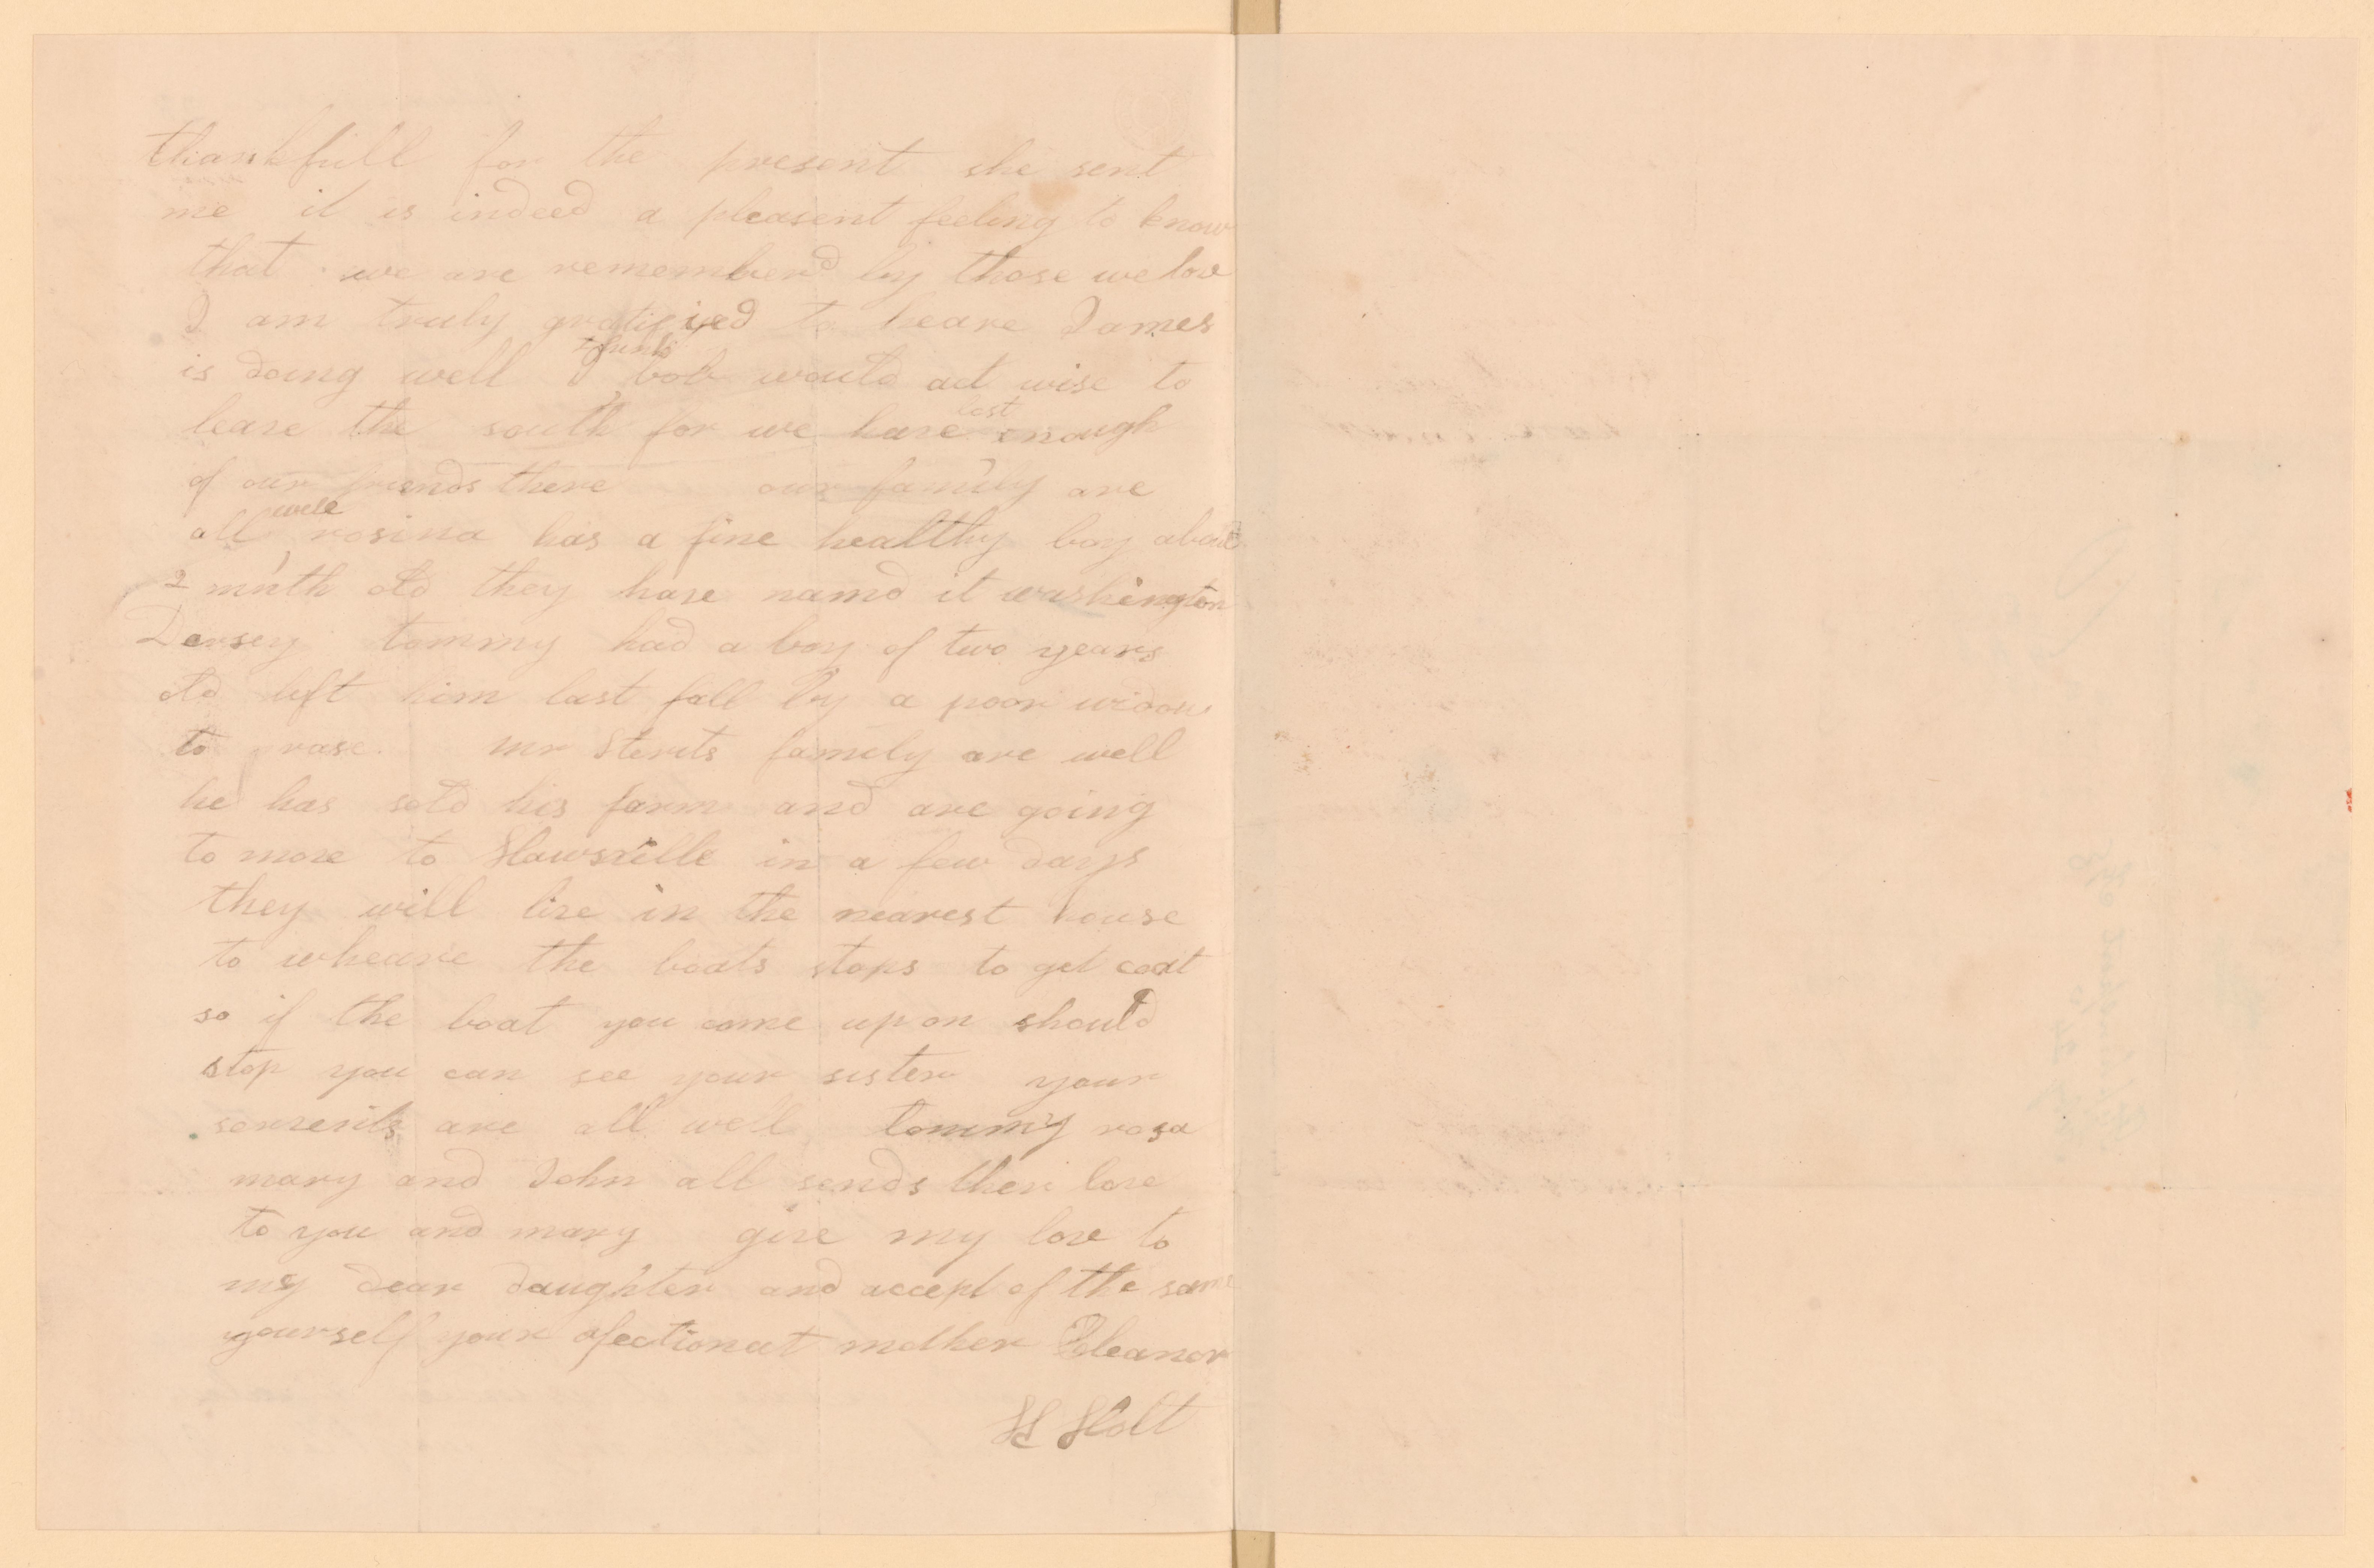 thankfull for the present she sent
me it is indeed a pleasent feeling to know
that we are rememberd by those we love
I am truly gratifiyed to heare James
is doing well I think bob would act wise to
leave the south for we have lost enough
of our friends there our family are
all well rosina has a fine healthy boy about
2 mnth old they have namd it washington
Dorsey tommy had a boy of two years
old left him last fall by a poor widow
to rase. Mr Sterits family are well
he has sold his farm and are going
to move to Hawsville in a few days
they will live in the nearest house
to wheare the boats stops to get coal
so if the boat you come up on should
stop you can see your sister your
servents are all well tommy rosa
mary and John all sends their love
to you and mary give my love to
my dear daughter and accept of the same
yourself your afectionat mother Eleanor
H Holt